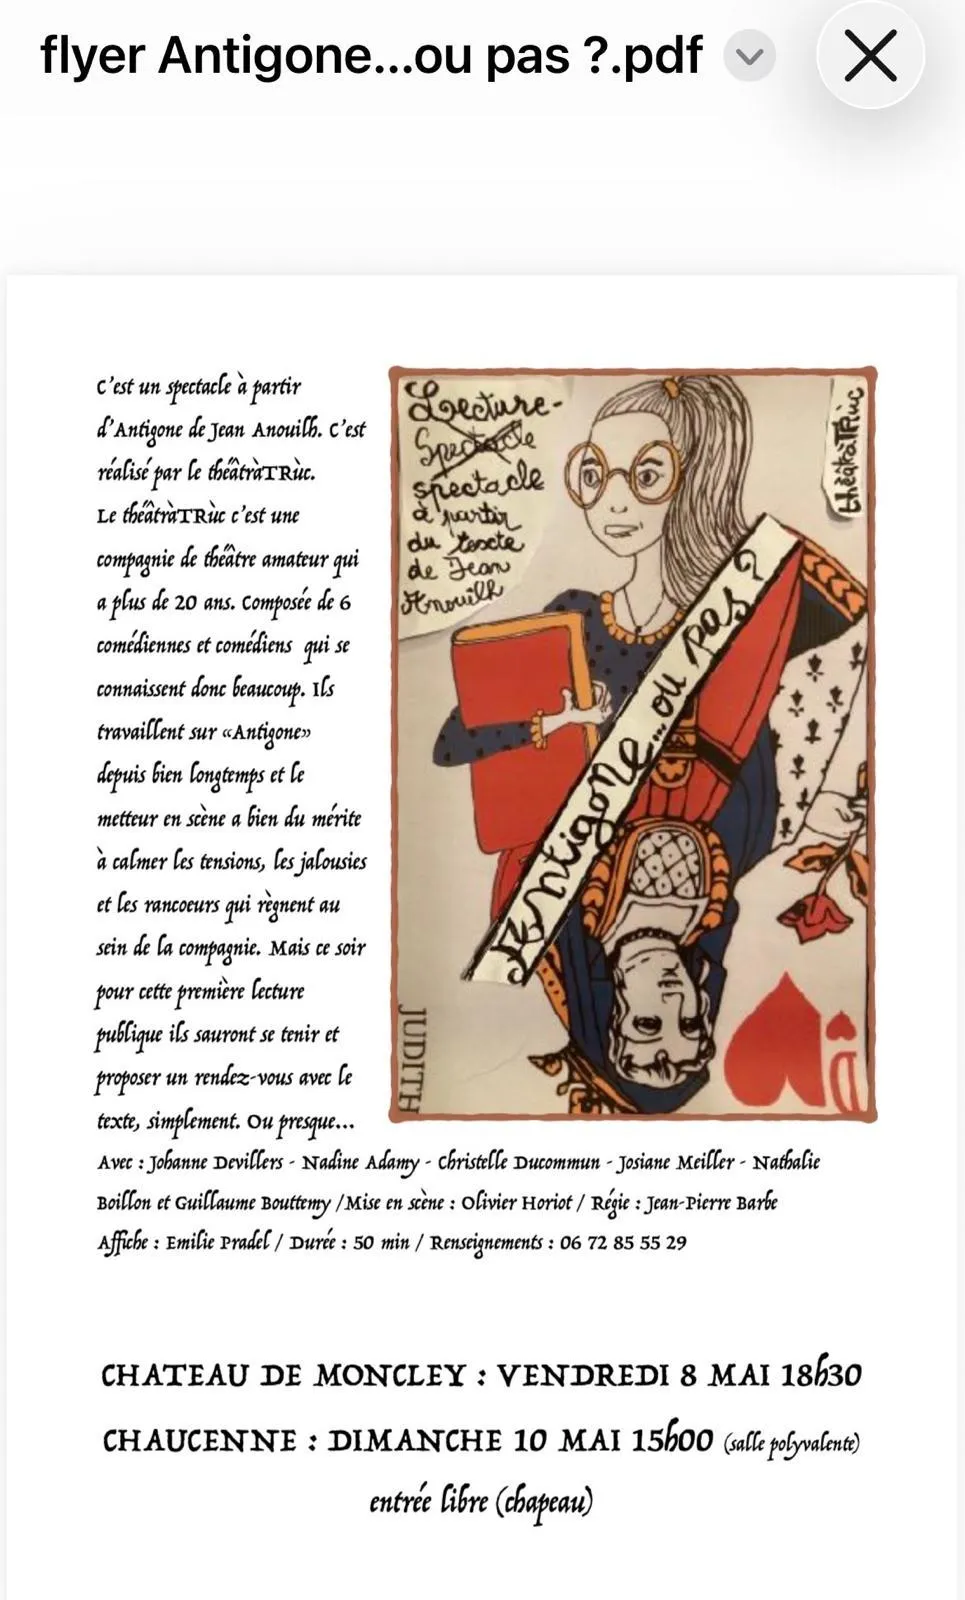 flyer Antigone...ou pas ?.pdf
C'est un spectacle à partir
d'Antigone de Jean Anouilh. C'est
réalisé par le théâtràTRùc.
Le théâtràTRùc c'est une
compagnie de théâtre amateur qui
a plus de 20 ans. Composée de 6
comédiennes et comédiens qui se
connaissent donc beaucoup. Ils
travaillent sur «Antigone»
depuis bien longtemps et le
metteur en scène a bien du mérite
à calmer les tensions, les jalousies
et les rancoeurs qui règnent au
sein de la compagnie. Mais ce soir
pour cette première lecture
publique ils sauront se tenir et
proposer un rendez-vous avec le
texte, simplement. Ou presque...
Lecture-
Spectacle
spectacle
à partir
du texte
de Jean
Anouilh
théâtràTRùc
Antigone...ou pas ?
JUDITH
D
Avec : Johanne Devillers - Nadine Adamy - Christelle Ducommun - Josiane Meiller - Nathalie
Boillon et Guillaume Bouttemy /Mise en scène : Olivier Horiot / Régie : Jean-Pierre Barbe
Affiche : Emilie Pradel / Durée : 50 min / Renseignements : 06 72 85 55 29
CHATEAU DE MONCLEY : VENDREDI 8 MAI 18h30
CHAUCENNE : DIMANCHE 10 MAI 15h00 (salle polyvalente)
entrée libre (chapeau)